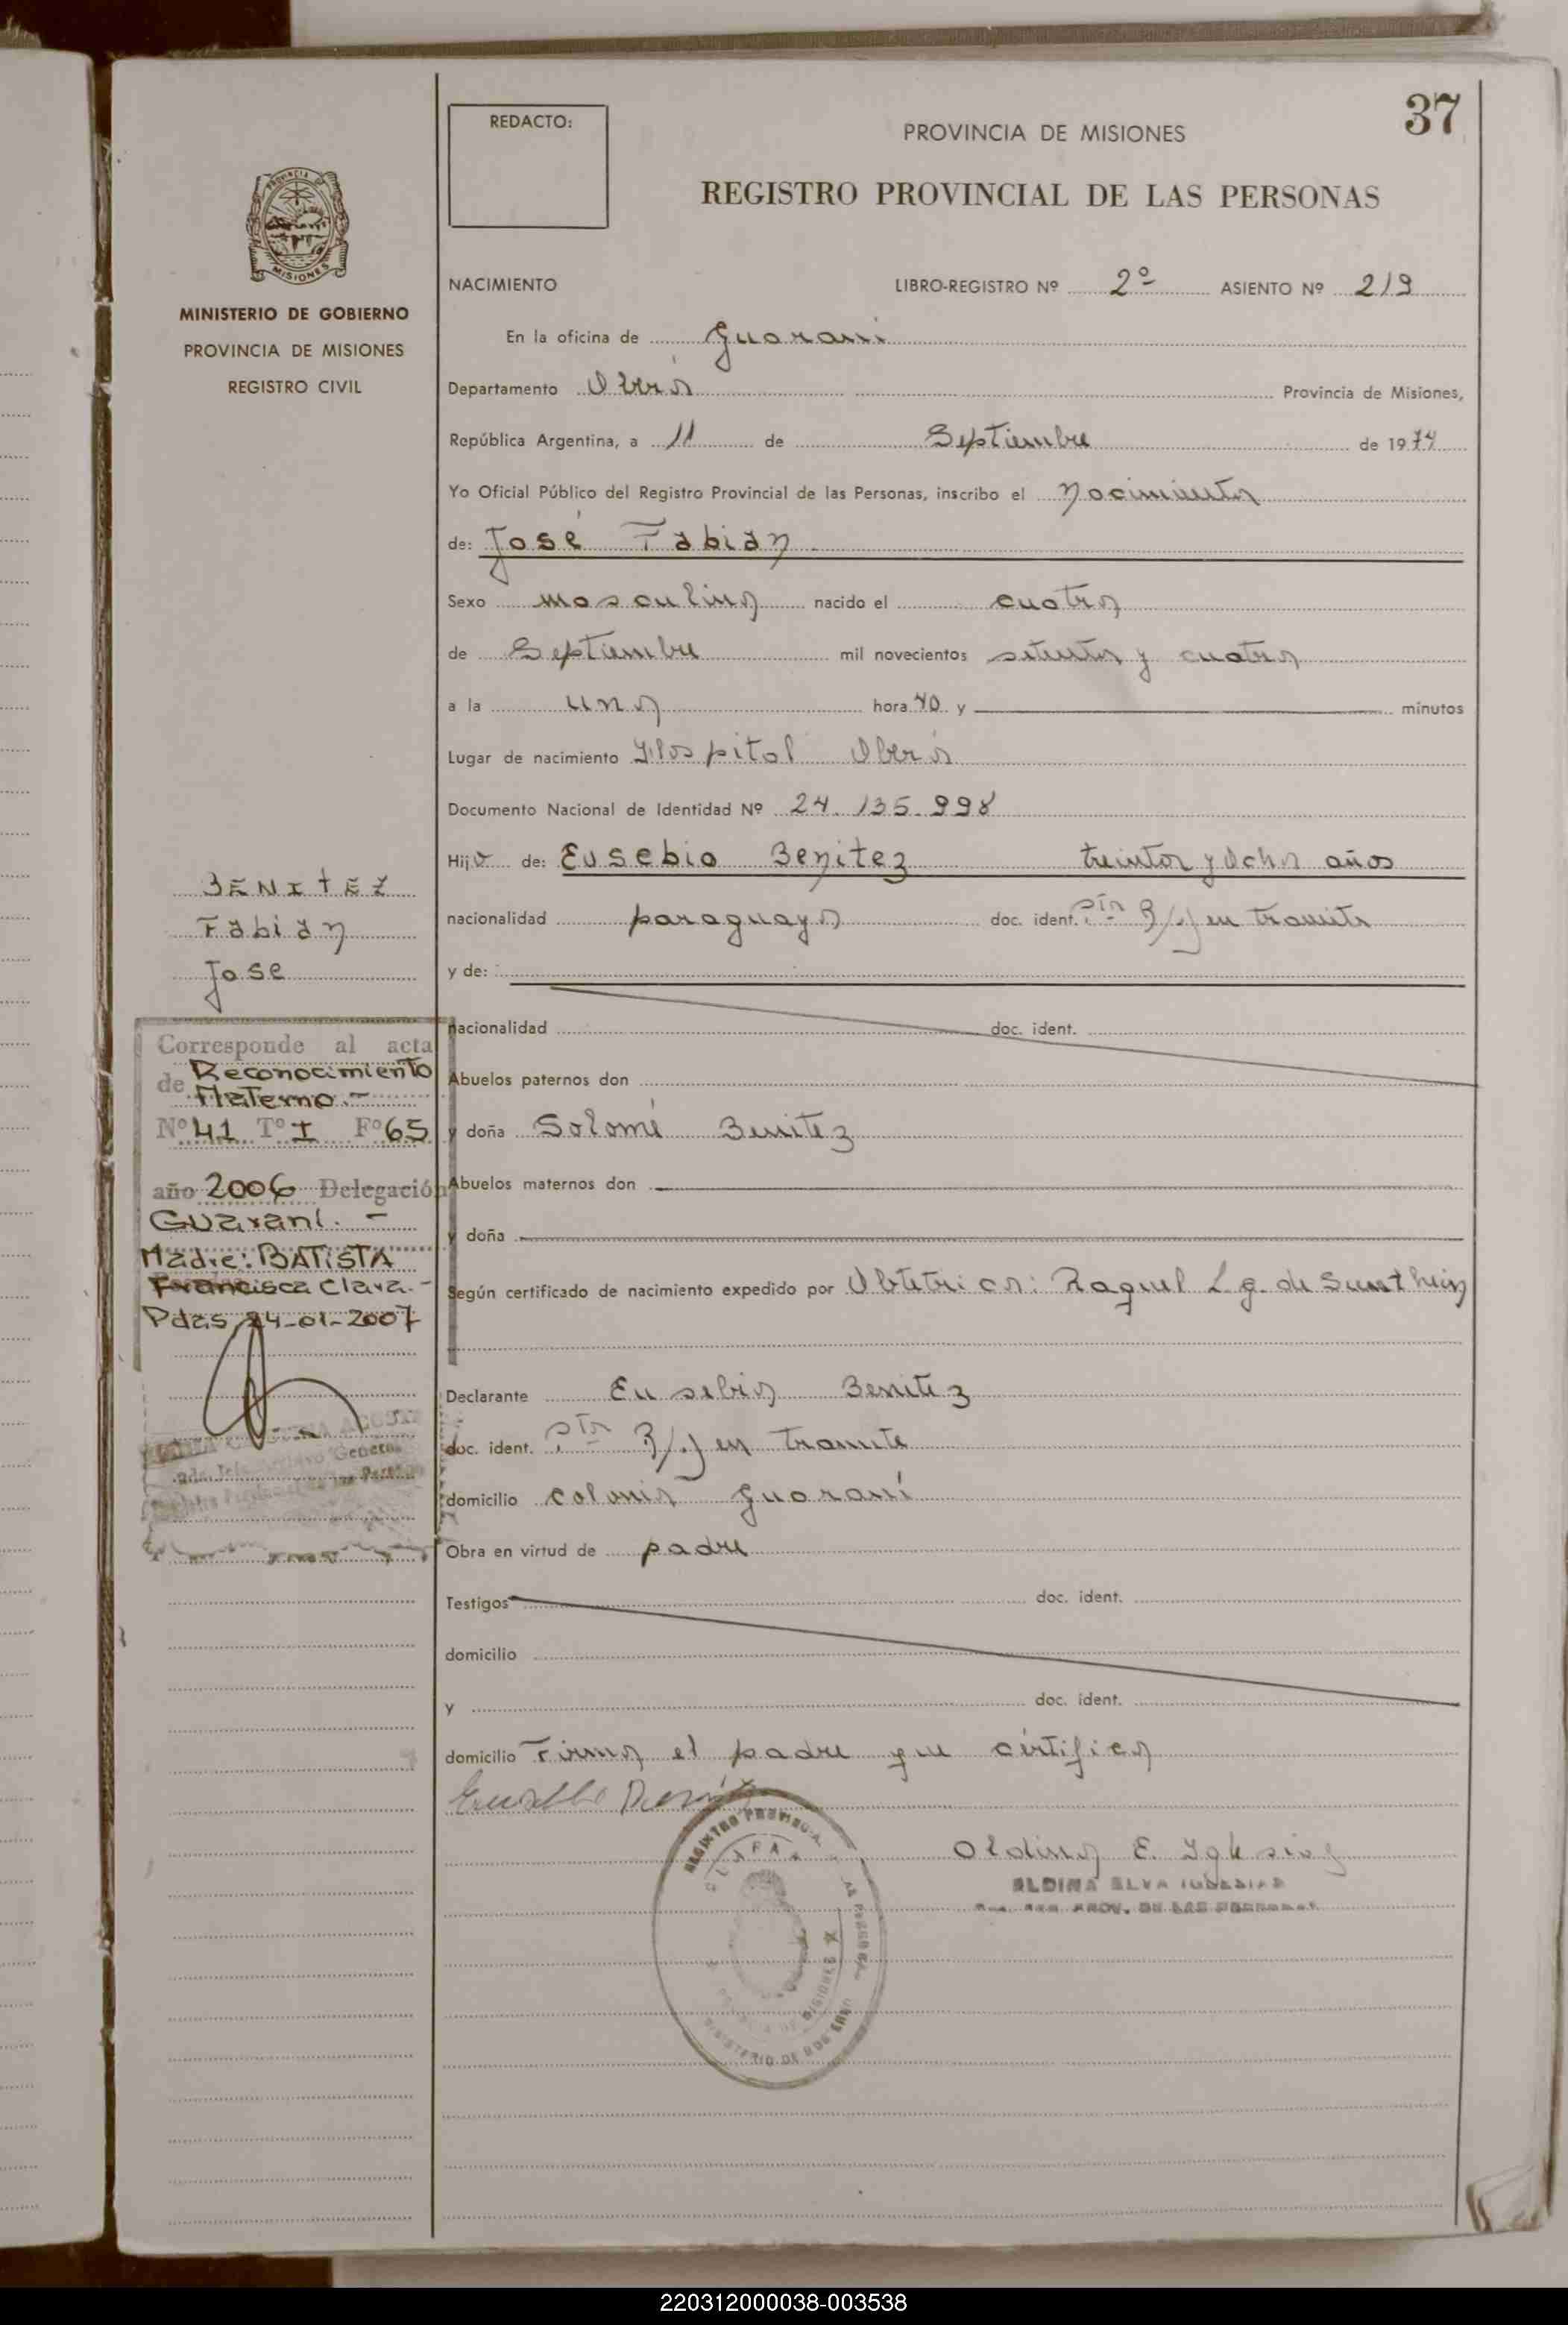 37
REDACTO:
PROVINCIA DE MISIONES
REGISTRO PROVINCIAL DE LAS PERSONAS
PROVINCIA DE
MISIONES
MINISTERIO DE GOBIERNO
PROVINCIA DE MISIONES
REGISTRO CIVIL
NACIMIENTO LIBRO-REGISTRO Nº 2º ASIENTO Nº 219
En la oficina de Guarani
Departamento Oberá Provincia de Misiones,
República Argentina, a 11 de Septiembre de 1974
Yo Oficial Público del Registro Provincial de las Personas, inscribo el nacimiento
de: José Fabián
Sexo masculino nacido el cuatro
de Septiembre mil novecientos setenta y cuatro
a la una hora 40 y minutos
Lugar de nacimiento Hospital Oberá
Documento Nacional de Identidad Nº 24.135.998
Hijo de: Eusebio Benitez treinta y ocho años
nacionalidad paraguaya doc. ident. en tramite
y de:
nacionalidad doc. ident.
Abuelos paternos don
y doña Solomé Benitez
Abuelos maternos don
y doña
Según certificado de nacimiento expedido por Obtetrica: Raquel L. g. de
Declarante Eusebio Benitez
doc. ident. en tramite
domicilio colonia Guaraní
Obra en virtud de padre
Testigos doc. ident.
domicilio
y doc. ident.
domicilio Firma el padre que certifica
Aldina E. Iglesias
ALDINA ELVA IGLESIAS
PROV. DE LAS PERSONAS
REGISTRO PROVINCIAL
MINISTERIO DE GOBIERNO
BENITEZ
Fabián
Jose
Corresponde al acta
de Reconocimiento
Materno.-
Nº 41 Tº I Fº 65
año 2006 Delegación
Guaraní. -
Madre: BATISTA
Francisca Clara.-
Pdas, 24-01-2007
220312000038-003538